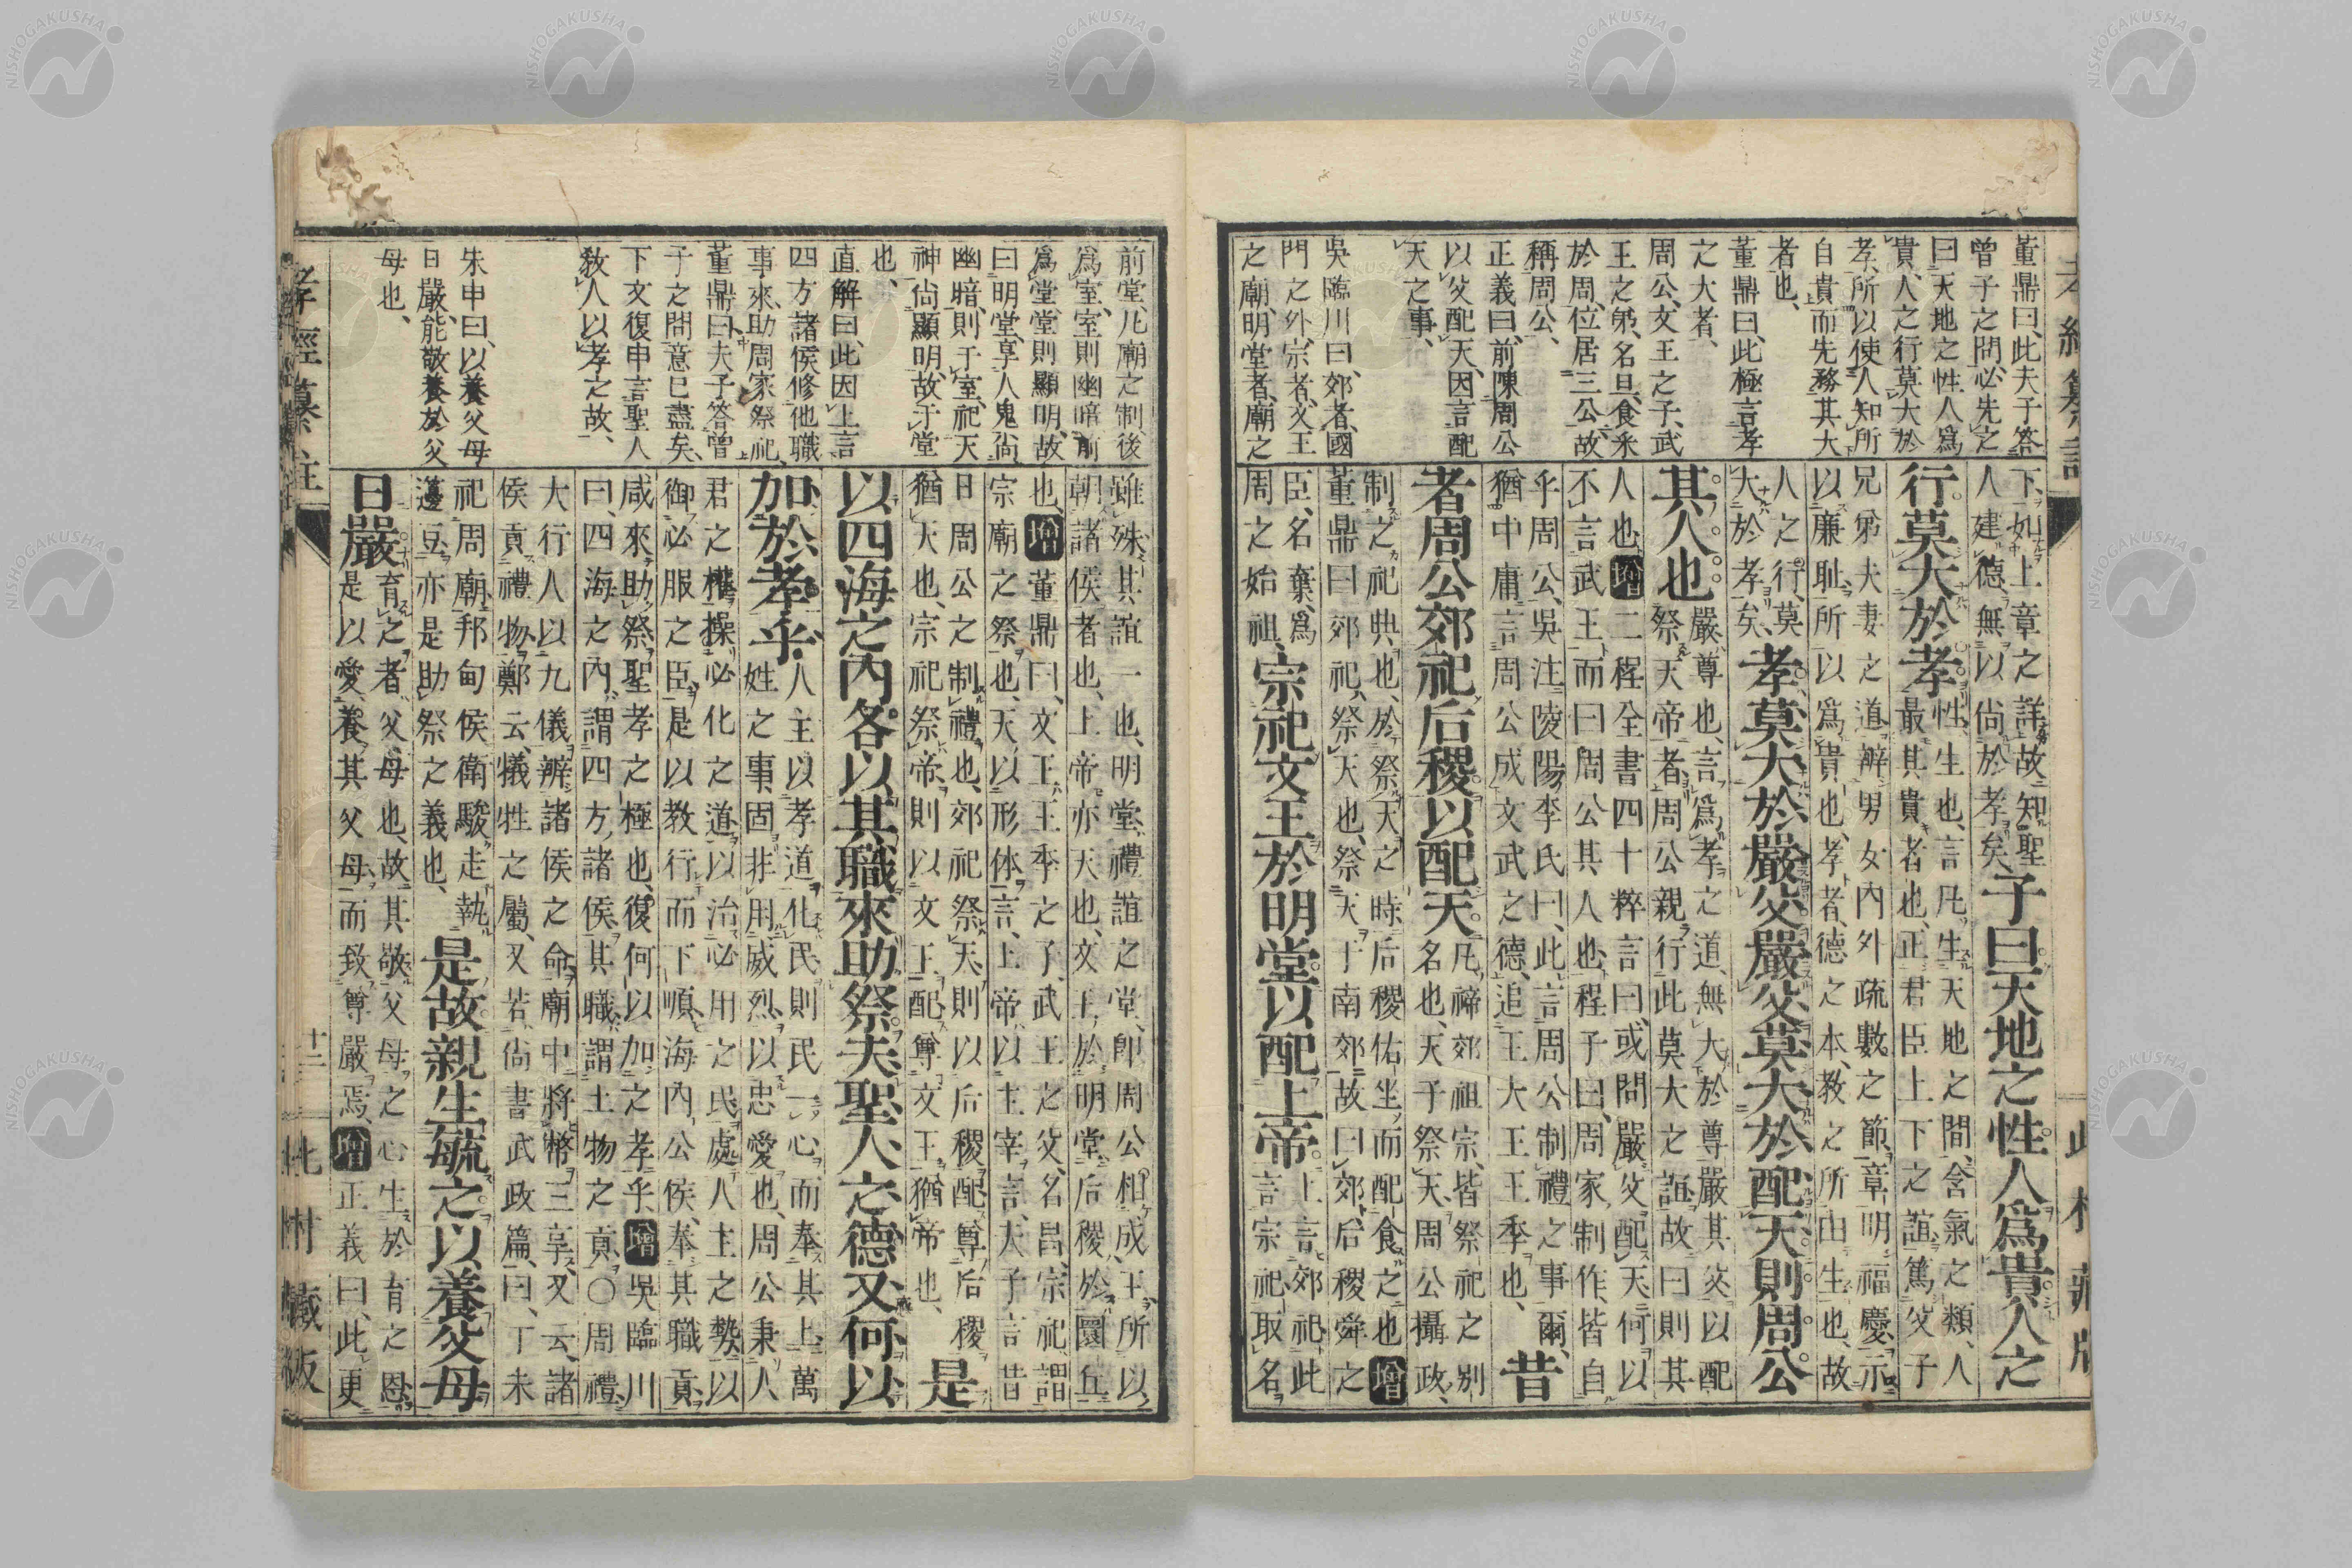 董鼎曰、此夫子答
曾子之問、必先之
曰天地之性人爲
貴、人之行莫大於
孝、所以使人知所
自貴而先務其大
者也、
董鼎曰、此極言孝
之大者、
周公、文王之子、武
王之弟、名旦、食釆
於周、位居三公、故
稱周公、
正義曰、前陳周公
以父配天、因言配
天之事、
吳臨川曰、郊者、國
門之外、宗者、文王
之廟、明堂者、廟之
下、如上章之詳、故知聖
人建德、無以尚於孝矣、
子曰天地之性人爲貴人之
行莫大於孝
性、生也、言凡生天地之間、含氣之類、人
最其貴者也、正君臣上下之誼、篤父子
兄弟夫妻之道、辨男女內外疏數之節、章明福慶、示
以廉耻、所以爲貴也、孝者、德之本、教之所由生也、故
人之行、莫
大於孝矣、
孝莫大於嚴父嚴父莫大於配天則周公
其人也
嚴、尊也、言爲孝之道、無大於尊嚴其父以配
祭天帝者、周公親行此莫大之誼、故曰則其
人也、增二程全書四十粹言曰、或問嚴父配天、何以
不言武王而曰周公其人也、程子曰、周家制作、皆自
乎周公、吳注陵陽李氏曰、此言周公制禮之事爾、
猶中庸言周公成文武之德、追王大王王季也、
昔
者周公郊祀后稷以配天
凡禘郊祖宗、皆祭祀之別
名也、天子祭天、周公攝政、
制之祀典也、於祭天之時后稷佑坐而配食之也、增
董鼎曰郊祀、祭天也、祭天于南郊、故曰郊、后稷舜之
臣、名棄、爲
周之始祖、
宗祀文王於明堂以配上帝
上言郊祀、此
言宗祀、取名
前堂、凡廟之制、後
爲室、室則幽暗、前
爲堂、堂則顯明、故
曰明堂、享人鬼尚
幽暗、則于室、祀天
神尚顯明、故于堂
也、
直解曰、此因上言
四方諸侯修他職
事、來助周家祭祀、
董鼎曰夫子答曾
子之問意已盡矣、
下文復申言聖人
教人以孝之故、
朱申曰、以養父母
日嚴、能敬養於父
母也、
雖殊、其誼一也、明堂、禮誼之堂、卽周公相成王、所以
朝諸侯者也、上帝亦天也、文王於明堂、后稷於圜丘
也、增董鼎曰、文王王季之子、武王之父、名昌、宗祀謂
宗廟之祭也、天以形体言、上帝以主宰言、天子言昔
日周公之制禮也、郊祀祭天、則以后稷配、尊后稷
猶天也、宗祀祭帝、則以文王配、尊文王、猶帝也、
是
以四海之內各以其職來助祭夫聖人之德又何以
加於孝乎
人主以孝道化民、則民一心、而奉其上、萬
姓之事、固非用威烈、以忠愛也、周公秉人
君之權操必化之道、以治必用之民、處人主之勢、以
御必服之臣、是以教行而下順、海內公侯、奉其職貢、
咸來助祭、聖孝之極也、復何以加之孝乎、增吳臨川
曰、四海之內、謂四方諸侯、其職、謂土物之貢、〇周禮、
大行人以九儀辨諸侯之命、廟中將幣三享、又云、諸
侯貢禮物、鄭云、犧牲之屬、又若尚書武政篇曰、丁未
祀周廟、邦甸侯衛駿走、執
籩豆、亦是助祭之義也、
是故親生毓之以養父母
日嚴
育之者、父母也、故其敬父母之心生於育之恩、
是以愛養其父母、而致尊嚴焉、增正義曰、此更
孝經纂註
十三
此村藏版